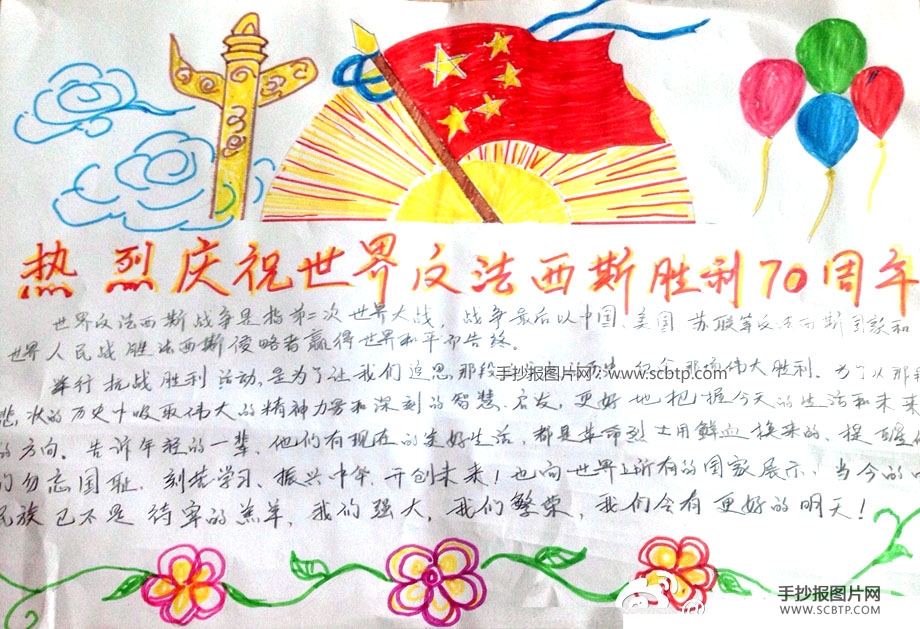 热烈庆祝世界反法西斯胜利70周年
世界反法西斯战争是指第二次世界大战,战争最后以中国、美国 苏联等反法西斯国家和
世界人民战胜法西斯侵略者赢得世界和平而告终。
举行抗战胜利活动,是为了让我们追思那段 伟大胜利。为了从那
手抄报图片网 www.scbtp.com
悲 的历史中吸取伟大的精神力量和深刻的智慧、启发,更好地把握今天的生活和未来
的方向。告诉年轻的一辈、他们有现在的美好生活,都是革命烈士用鲜血换来的、提醒
们勿忘国耻、刻苦学习、振兴中华、开创未来!也向世界上所有的国家展示、当今的
民族已不是待宰的羔羊,我们强大,我们繁荣,我们会有更好的明天!
手抄报图片网
WWW.SCBTP.COM